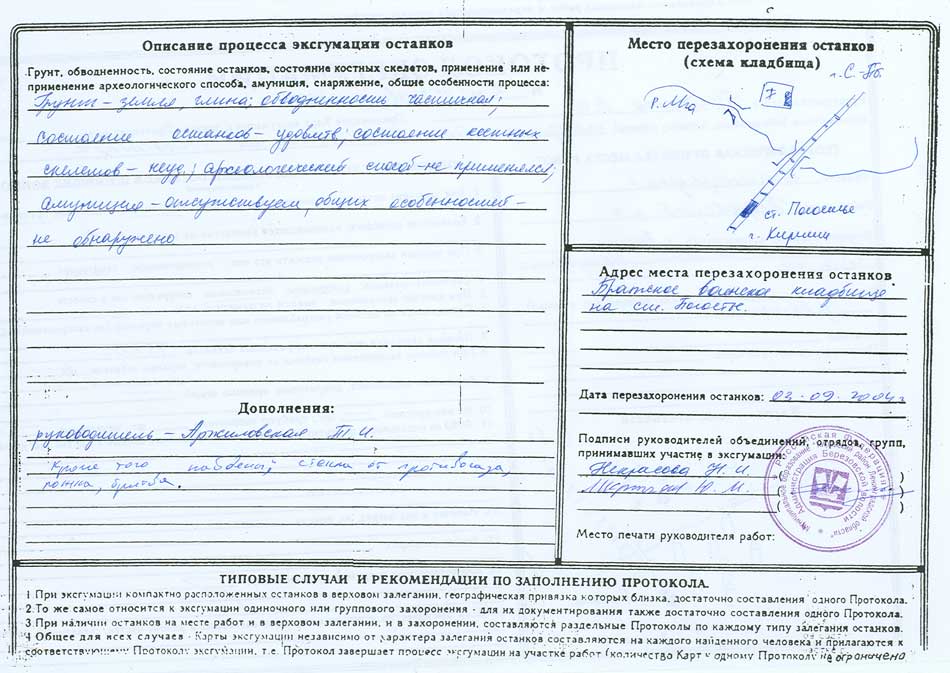 Описание процесса эксгумации останков
Грунт, обводненность, состояние останков, состояние костных скелетов, применение или не-
применение археологического способа, амуниция, снаряжение, общие особенности процесса:
Грунт – земля, глина; обводненность частичная;
состояние останков – удовлетв; состояние костных
скелетов – неуд; археологический способ – не применялся;
Амуниция – отсутствует, общих особенностей –
не обнаружено
Дополнения:
руководитель – Т.И.
Кроме того, найдены стекла от противогаза,
ложка, бритва.
Место перезахоронения останков
(схема кладбища)
г. С.-Пб.
р. Мга
ст. Погостье
г. Кириши
Адрес места перезахоронения останков
Братское воинское кладбище
на ст. Погостье.
Дата перезахоронения останков: 03.09.2004 г
Подписи руководителей объединений, отрядов, групп,
принимавших участие в эксгумации:
Некрасова Н. И. ( )
Ю. М. ( )
( )
Российская Федерация
Администрация Березовской волости
Место печати руководителя работ:
ТИПОВЫЕ СЛУЧАИ И РЕКОМЕНДАЦИИ ПО ЗАПОЛНЕНИЮ ПРОТОКОЛА.
1 При эксгумации компактно расположенных останков в верховом залегании, географическая привязка которых близка, достаточно составления одного Протокола.
2.То же самое относится к эксгумации одиночного или группового захоронения - для их документирования также достаточно составления одного Протокола.
3.При наличии останков на месте работ и в верховом залегании, и в захоронении, составляются раздельные Протоколы по каждому типу залегания останков.
4 Общее для всех случаев - Карты эксгумации независимо от характера залегания останков составляются на каждого найденного человека и прилагаются к
соответствующему Протоколу эксгумации, т.е. Протокол завершает процесс эксгумации на участке работ (количество Карт к одному Протоколу не ограничено